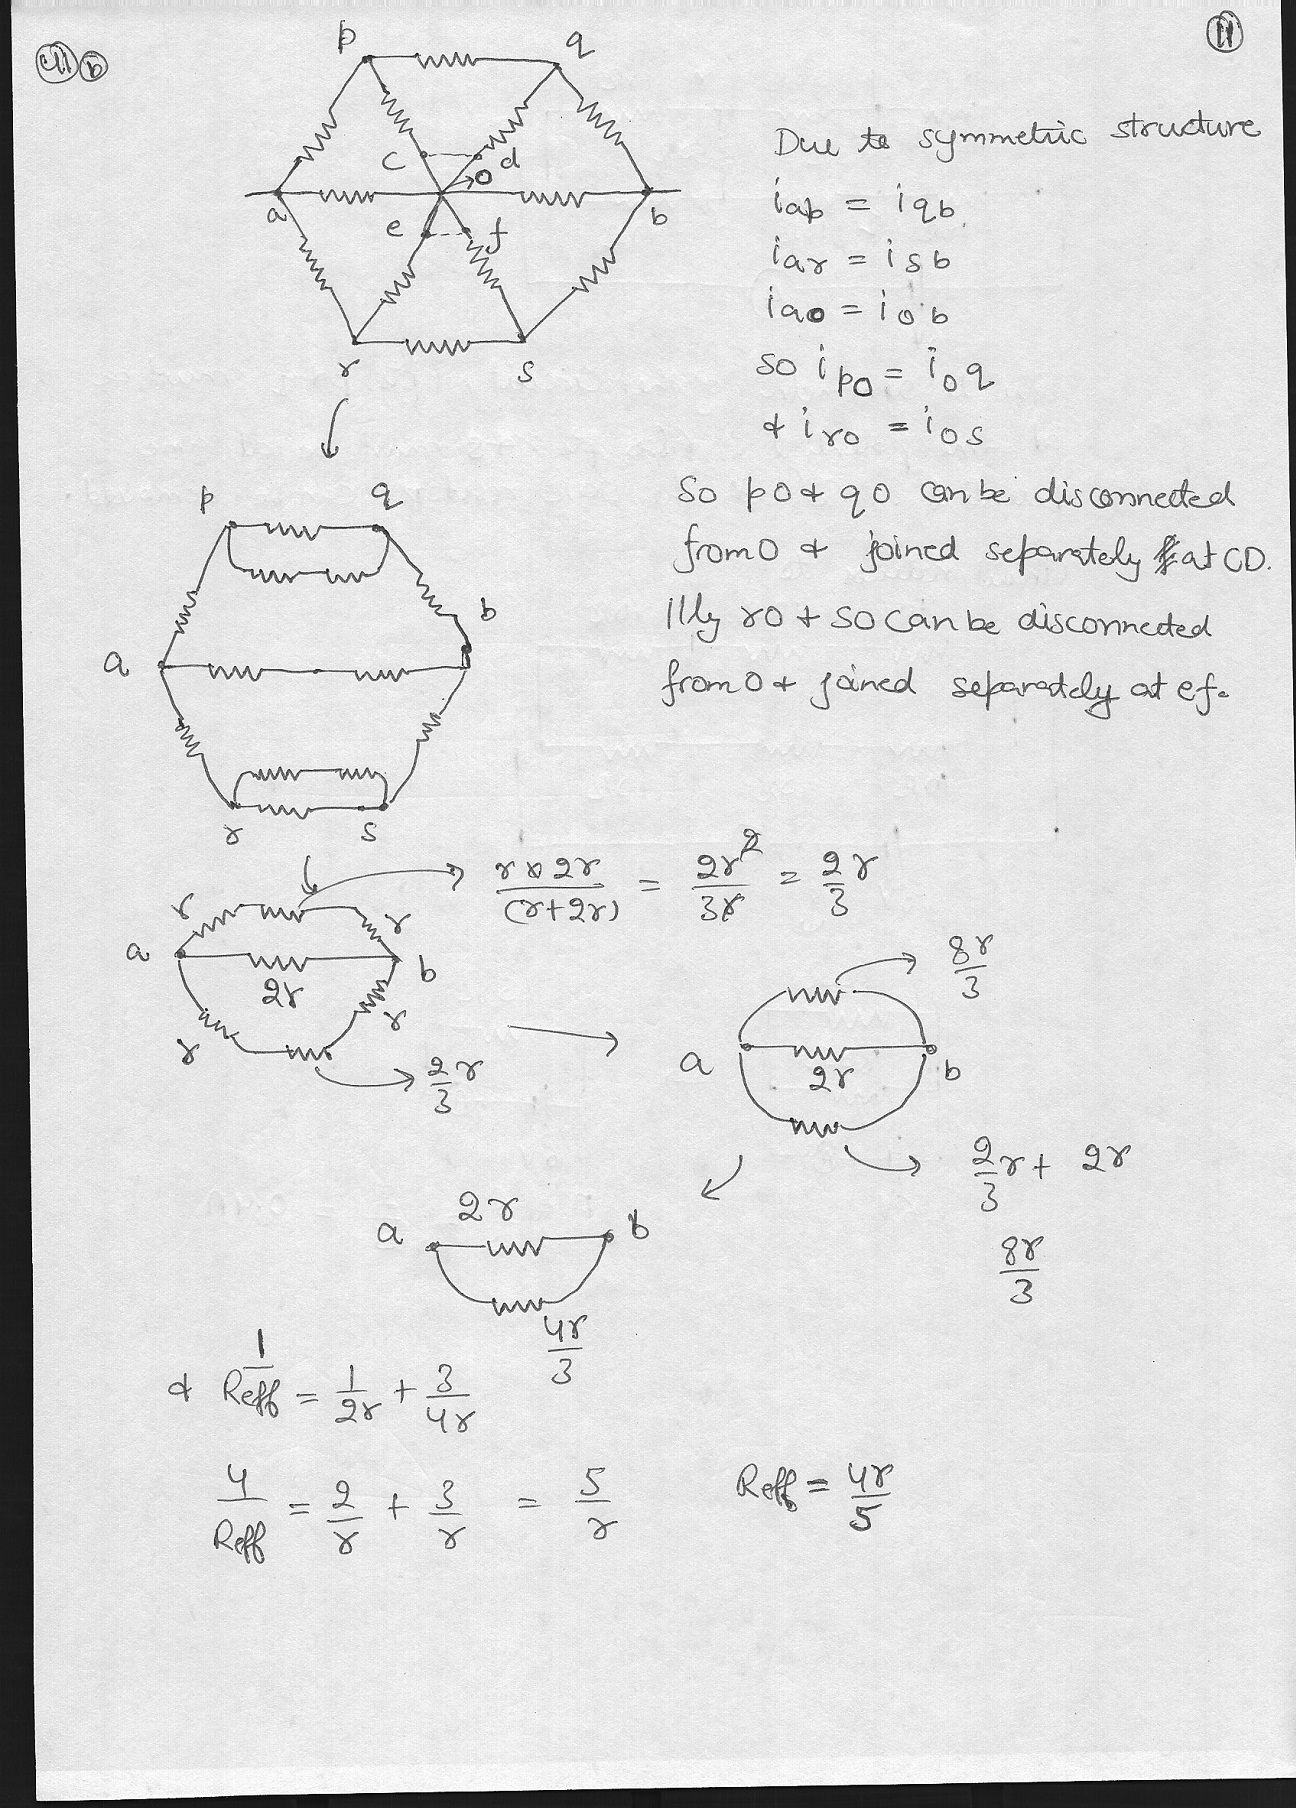 41 b
11
p q
c d
o
a b
e f
r s
Due to symmetric structure
iap = iqb
iar = isb
iao = iob
so ipo = ioq
& iro = ios
So po & qo can be disconnected
from O & joined separately at CD.
Illy ro & so can be disconnected
from O & joined separately at ef.
p q
a b
r s
r r
a b
2r
r r
r×2r/(r+2r) = 2r²/3r = 2/3 r
2/3 r
8r/3
a b
2r
2/3 r + 2r
8r/3
2r
a b
4r/3
& 1/Reff = 1/2r + 3/4r
4/Reff = 2/r + 3/r = 5/r
Reff = 4r/5